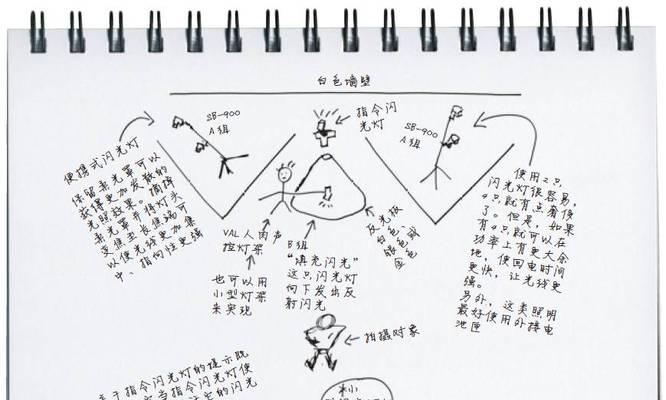 白色墙壁
SB-900
A组
指令闪
光灯
SB-900
A组
便携式闪光灯
保留柔光罩可以
获得更加发散的
光照效果。摘掉
柔光罩并将灯头
变焦至长焦端可
以使光线更加集
中、指向性更强
使用2只
闪光灯很容易，
4只就有点奢侈
了。但是，如果
有4只就可以在
功率上有更大余
地，使回电时间
更快，让光线更
强。
另外，这类照明
最好使用外接电
池匣
VAL人肉声
控灯架
也可以用
小型灯架
来实现
B组
“填充闪光”
这只闪光灯
向下发出反
射闪光
反光板
白色、
银色或
金色
拍摄对象
关于指令闪光灯的提示既
当指令闪光灯使
的闪光